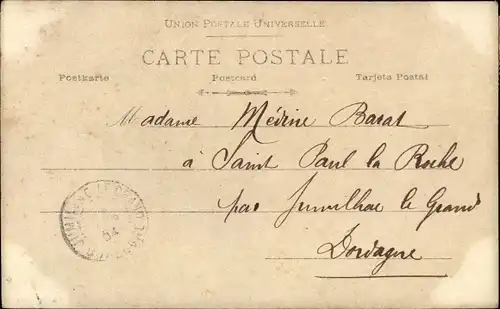 UNION POSTALE UNIVERSELLE
CARTE POSTALE
Postkarte Postcard Tarjeta Postal
Madame Médrine Barat
à Saint Paul la Roche
par Jumilhac le Grand
Dordogne
JUMILHAC-LE-GRAND
04